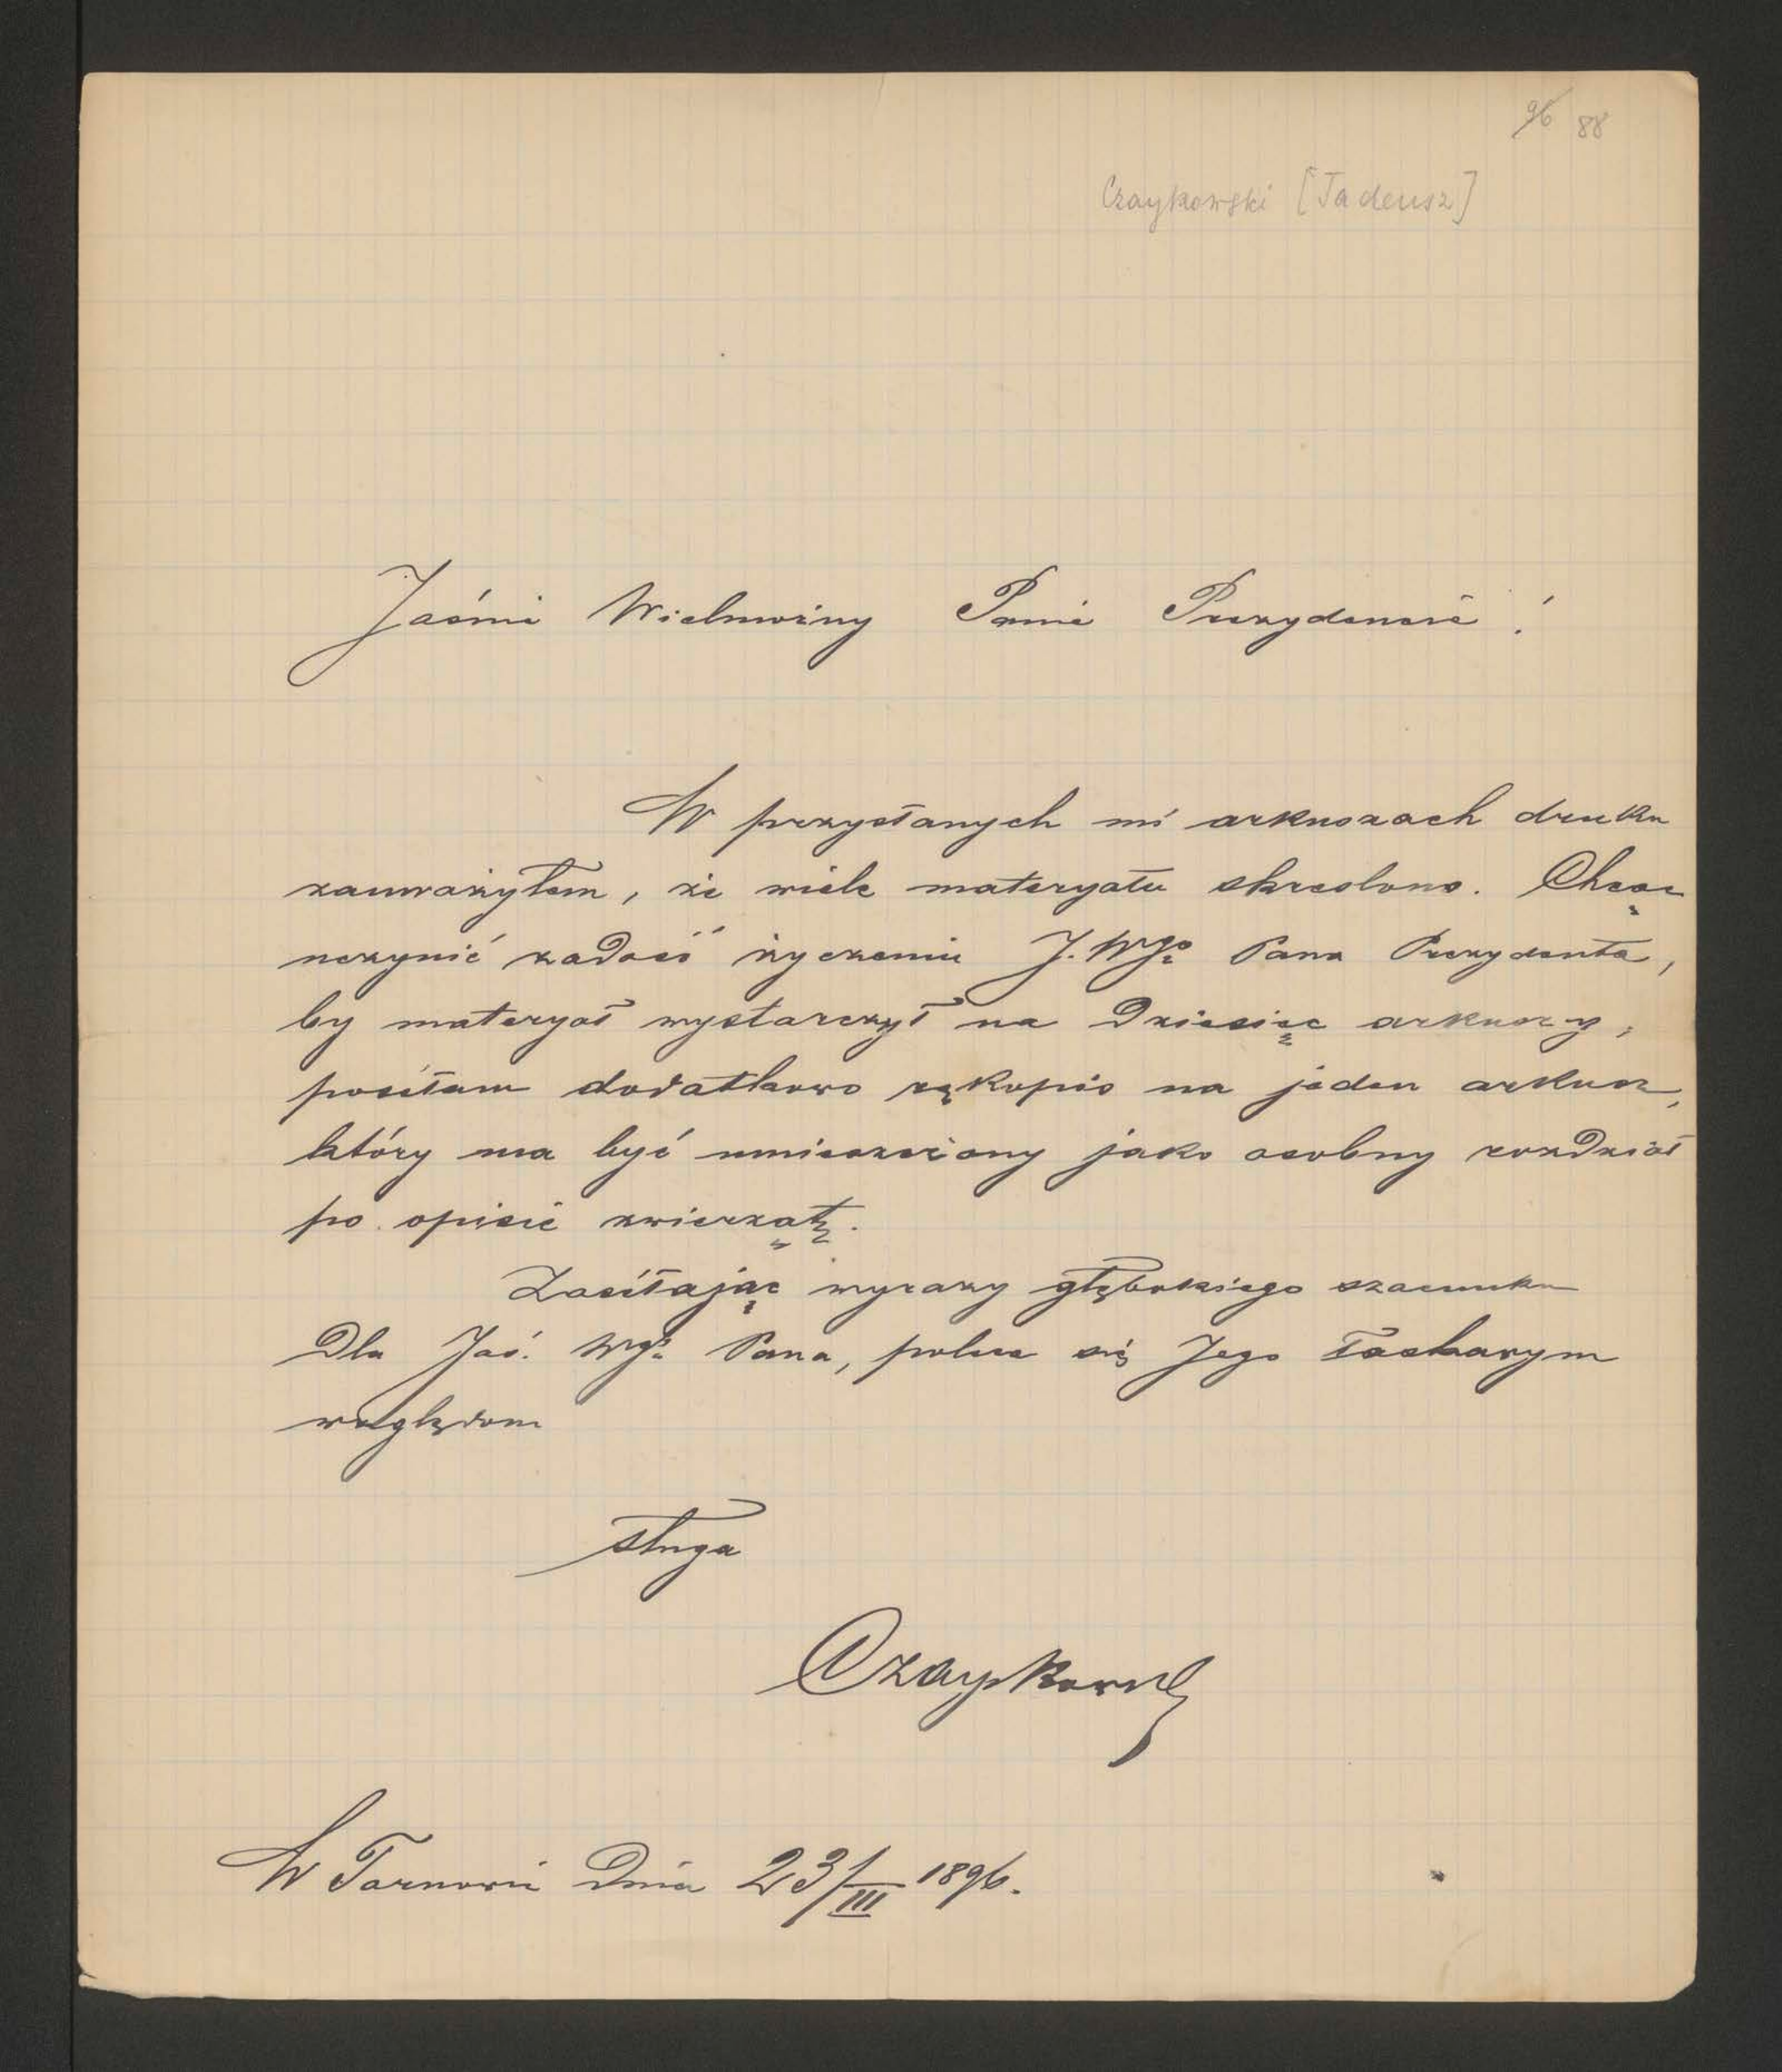 96 88
Czaykowski [Tadeusz]
Jaśnie Wielmożny Panie Prezydencie!
W przysłanych mi arkuszach druku
zauważyłem, że wiele materyału skreślono. Chcąc
uczynić zadość życzeniu J. Wgo Pana Prezydenta,
by materyał wystarczył na dziesięć arkuszy,
posełam dodatkowo rękopis na jeden arkusz,
który ma być umieszczony jako osobny rozdział
po opisie zwierząt.
Zasełając wyrazy głębokiego szacunku
dla Jaś. Wgo Pana, polecam się Jego łaskawym
względom
sługa
Czaykowski
W Tarnowie dnia 23/III 1896.